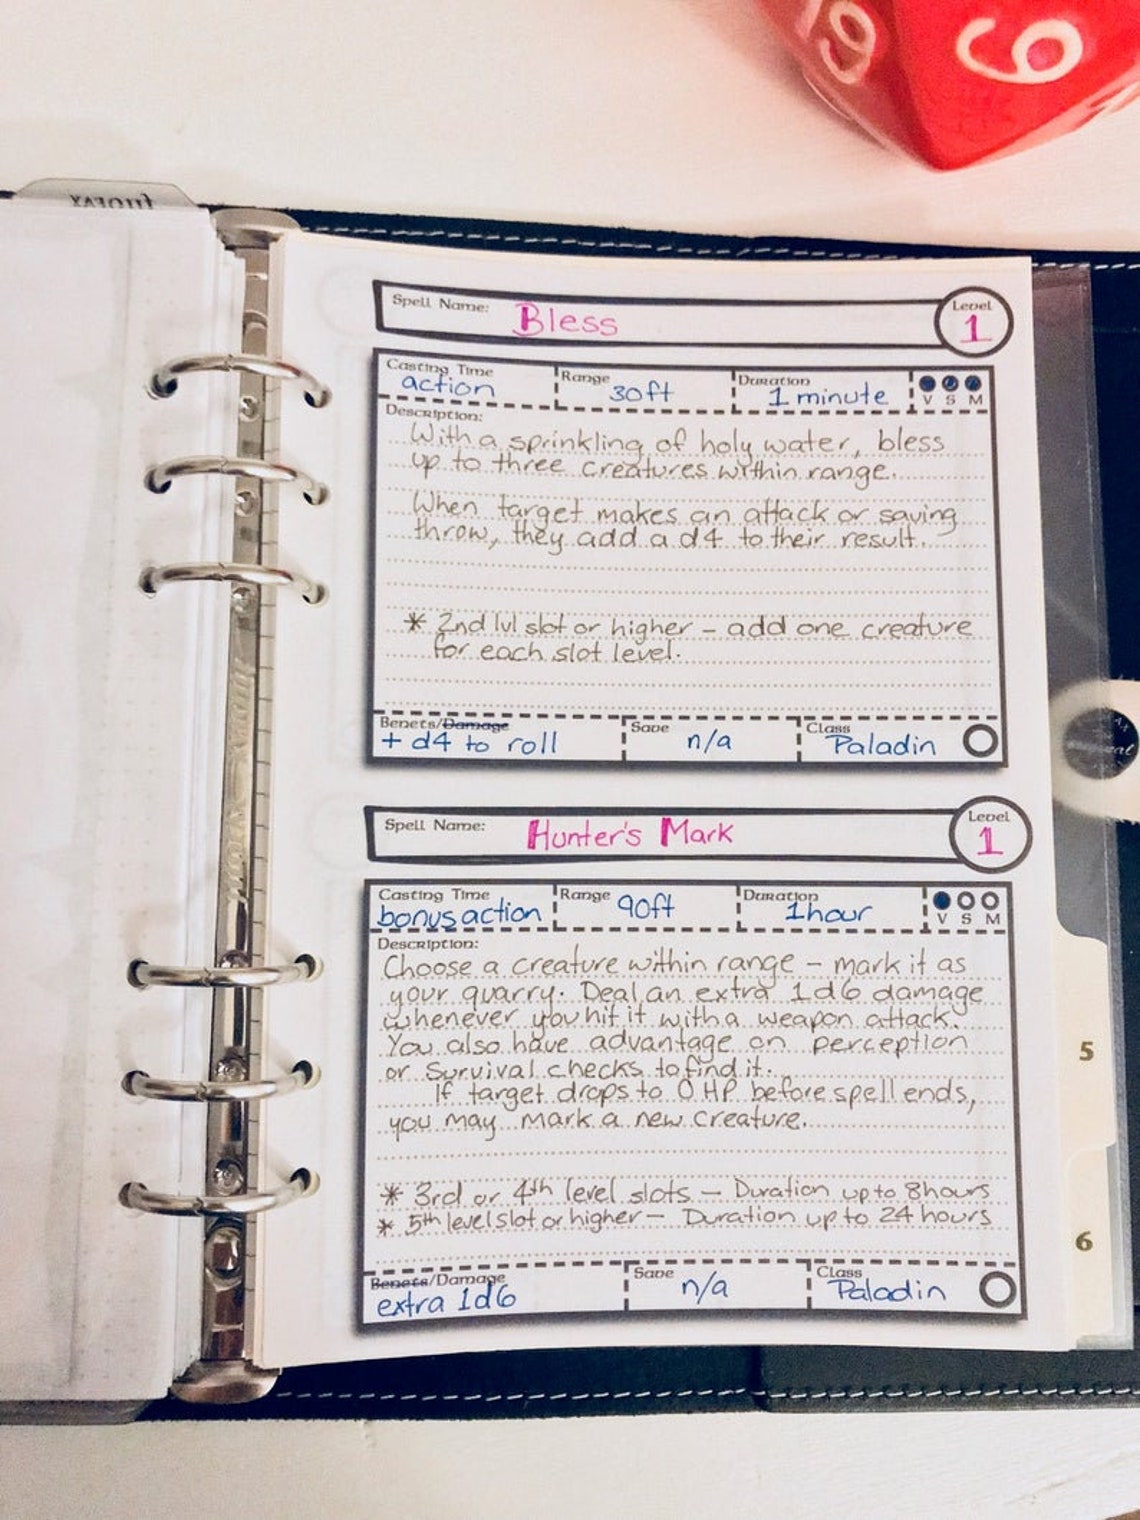 19
9
filofax
Spell Name: Bless
Level
1
Casting Time
action
Range
30ft
Duration
1 minute
V S M
Description:
With a sprinkling of holy water, bless
up to three creatures within range.
When target makes an attack or saving
throw, they add a d4 to their result.
* 2nd lvl slot or higher - add one creature
for each slot level.
Benets/Damage
+ d4 to roll
Save
n/a
Class
Paladin
Spell Name: Hunter's Mark
Level
1
Casting Time
bonus action
Range
90ft
Duration
1hour
V S M
Description:
Choose a creature within range - mark it as
your quarry. Deal an extra 1d6 damage
whenever you hit it with a weapon attack.
You also have advantage on perception
or survival checks to find it.
If target drops to 0 HP before spell ends,
you may mark a new creature.
* 3rd or 4th level slots - Duration up to 8hours
* 5th level slot or higher - Duration up to 24 hours
Benets/Damage
extra 1d6
Save
n/a
Class
Paladin
5
6